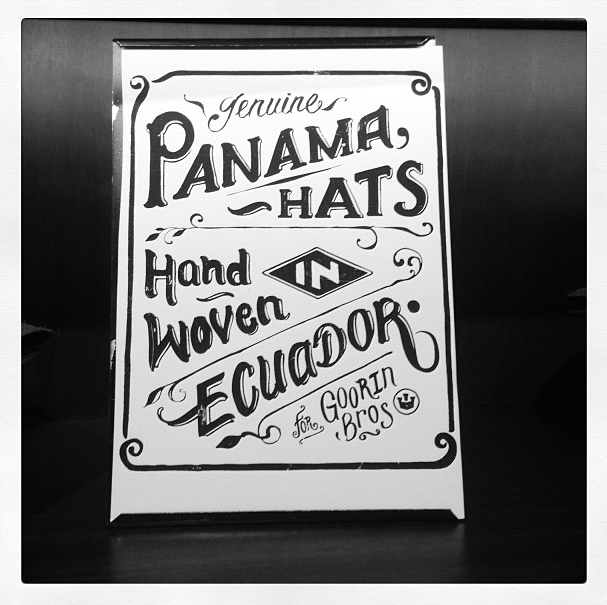 genuine
PANAMA
HATS
Hand IN
Woven
ECUADOR
for GOORIN
Bros